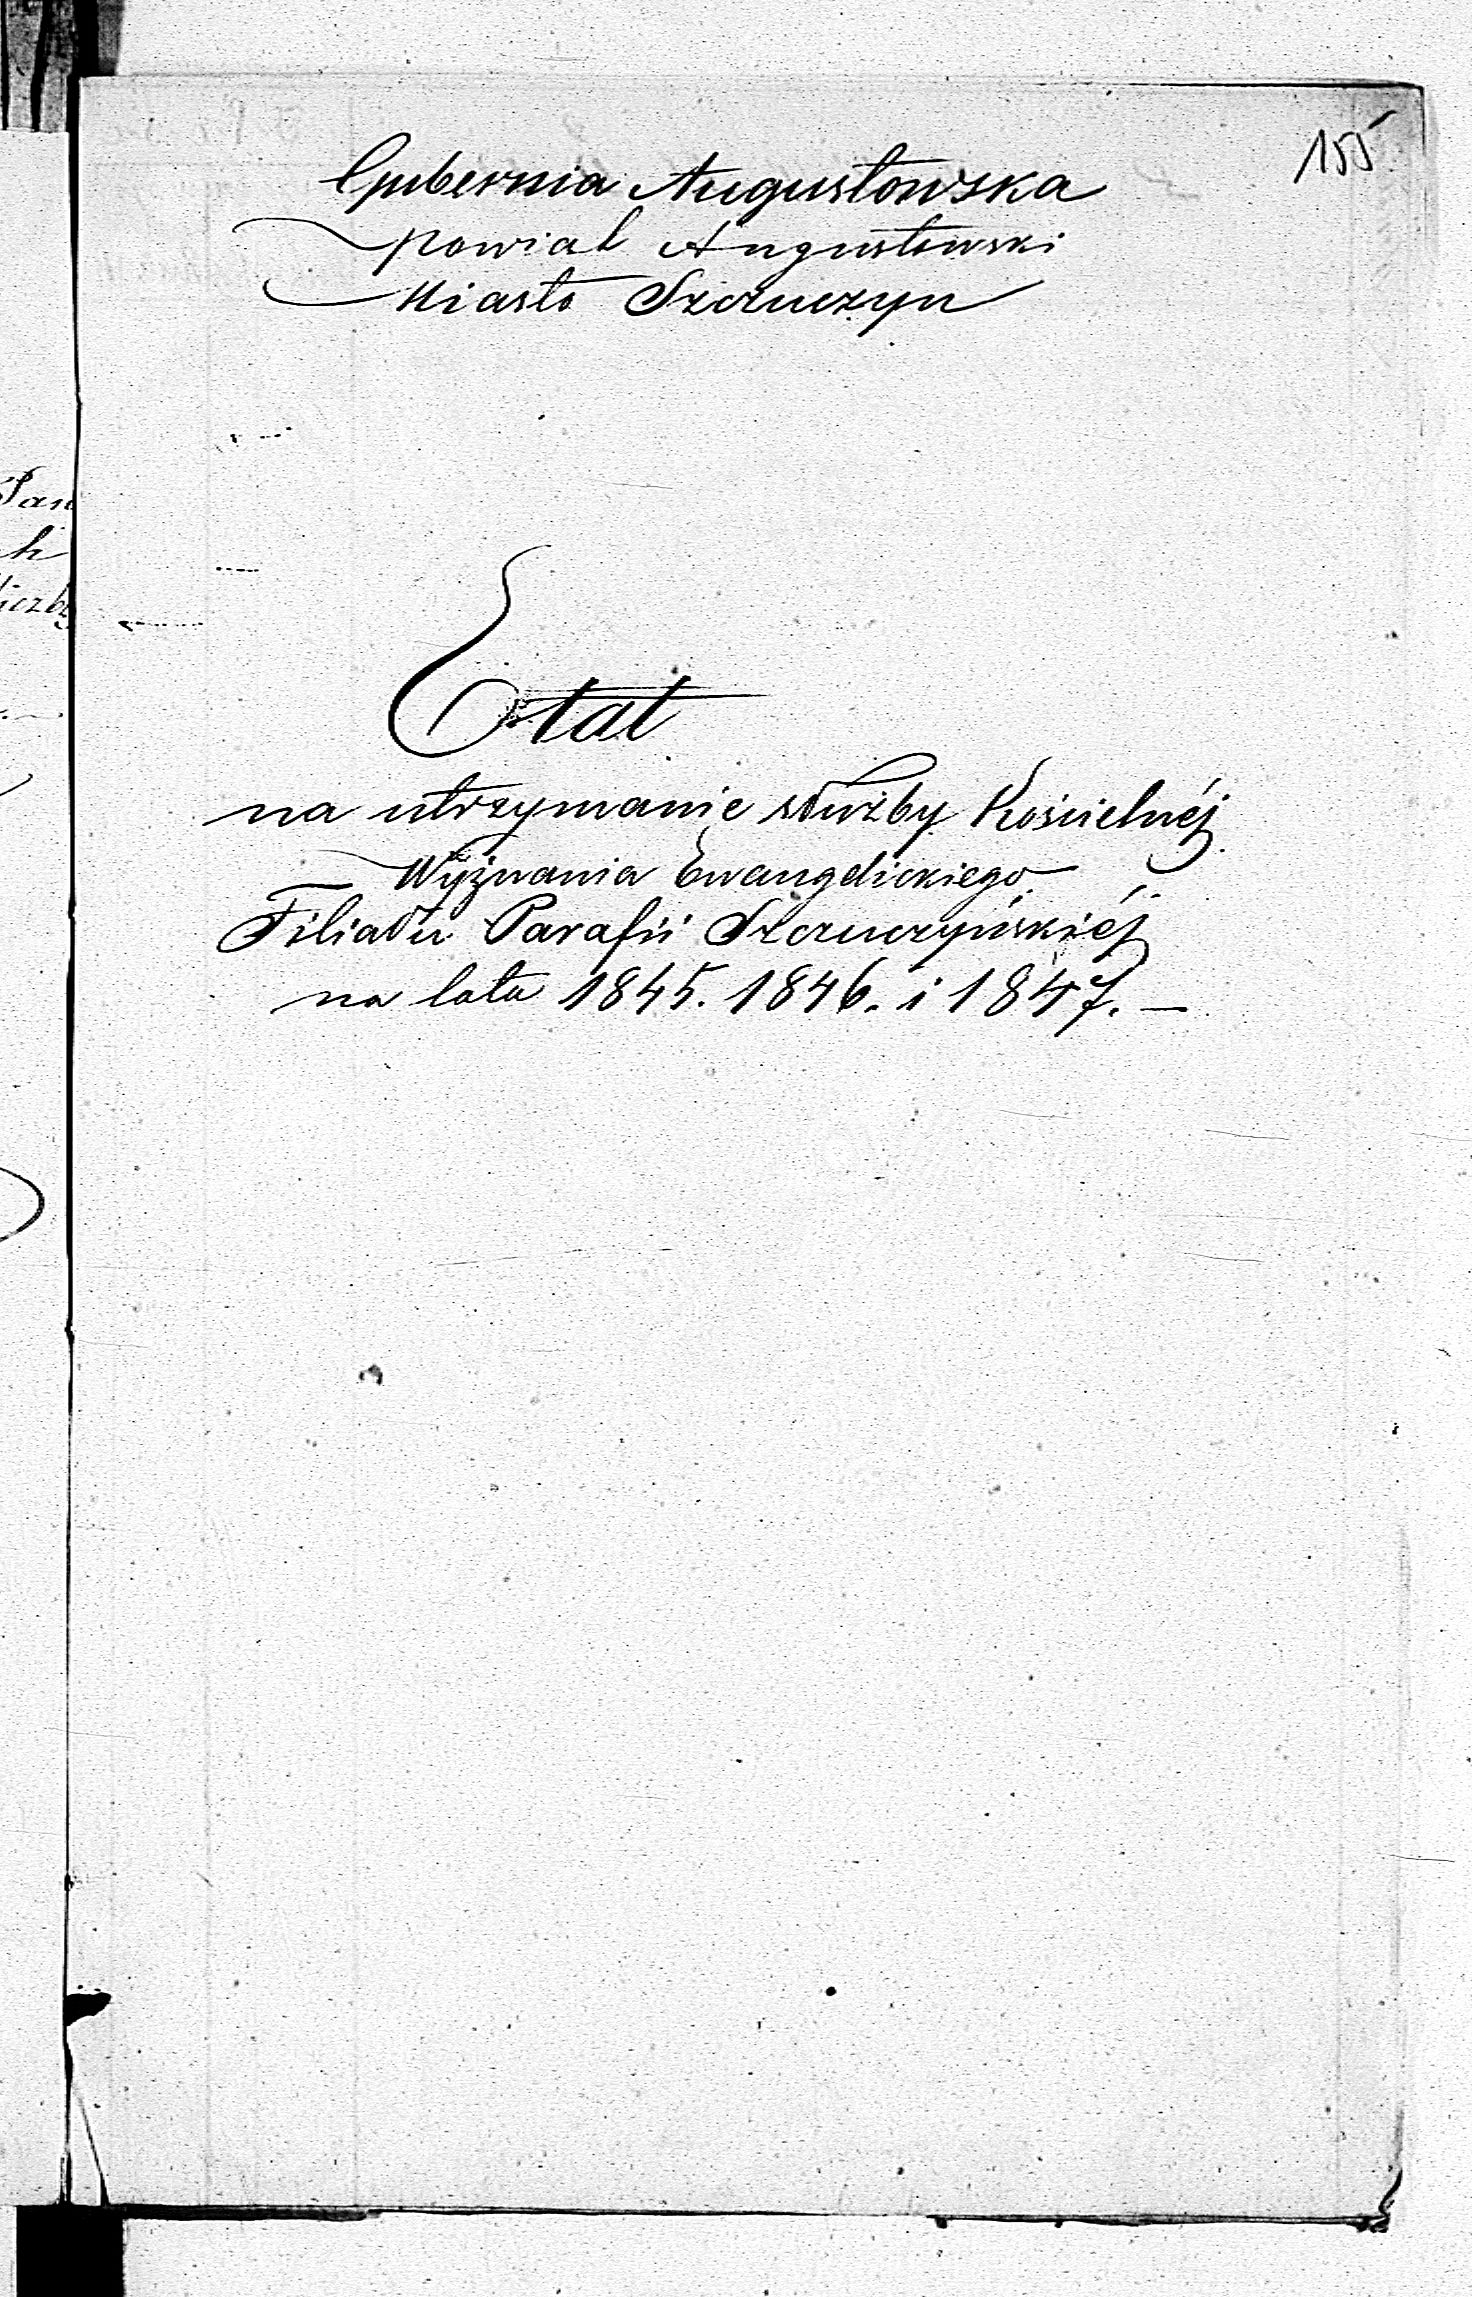 155
Gubernia Augustowska
Powiat Augustowski
Miasto Szczuczyn
Etat
na utrzymanie służby Kościelnéj
Wyznania Ewangelickiego
Filiału Parafii Szczuczyńskiéj
na lata 1845. 1846. i 1847. —